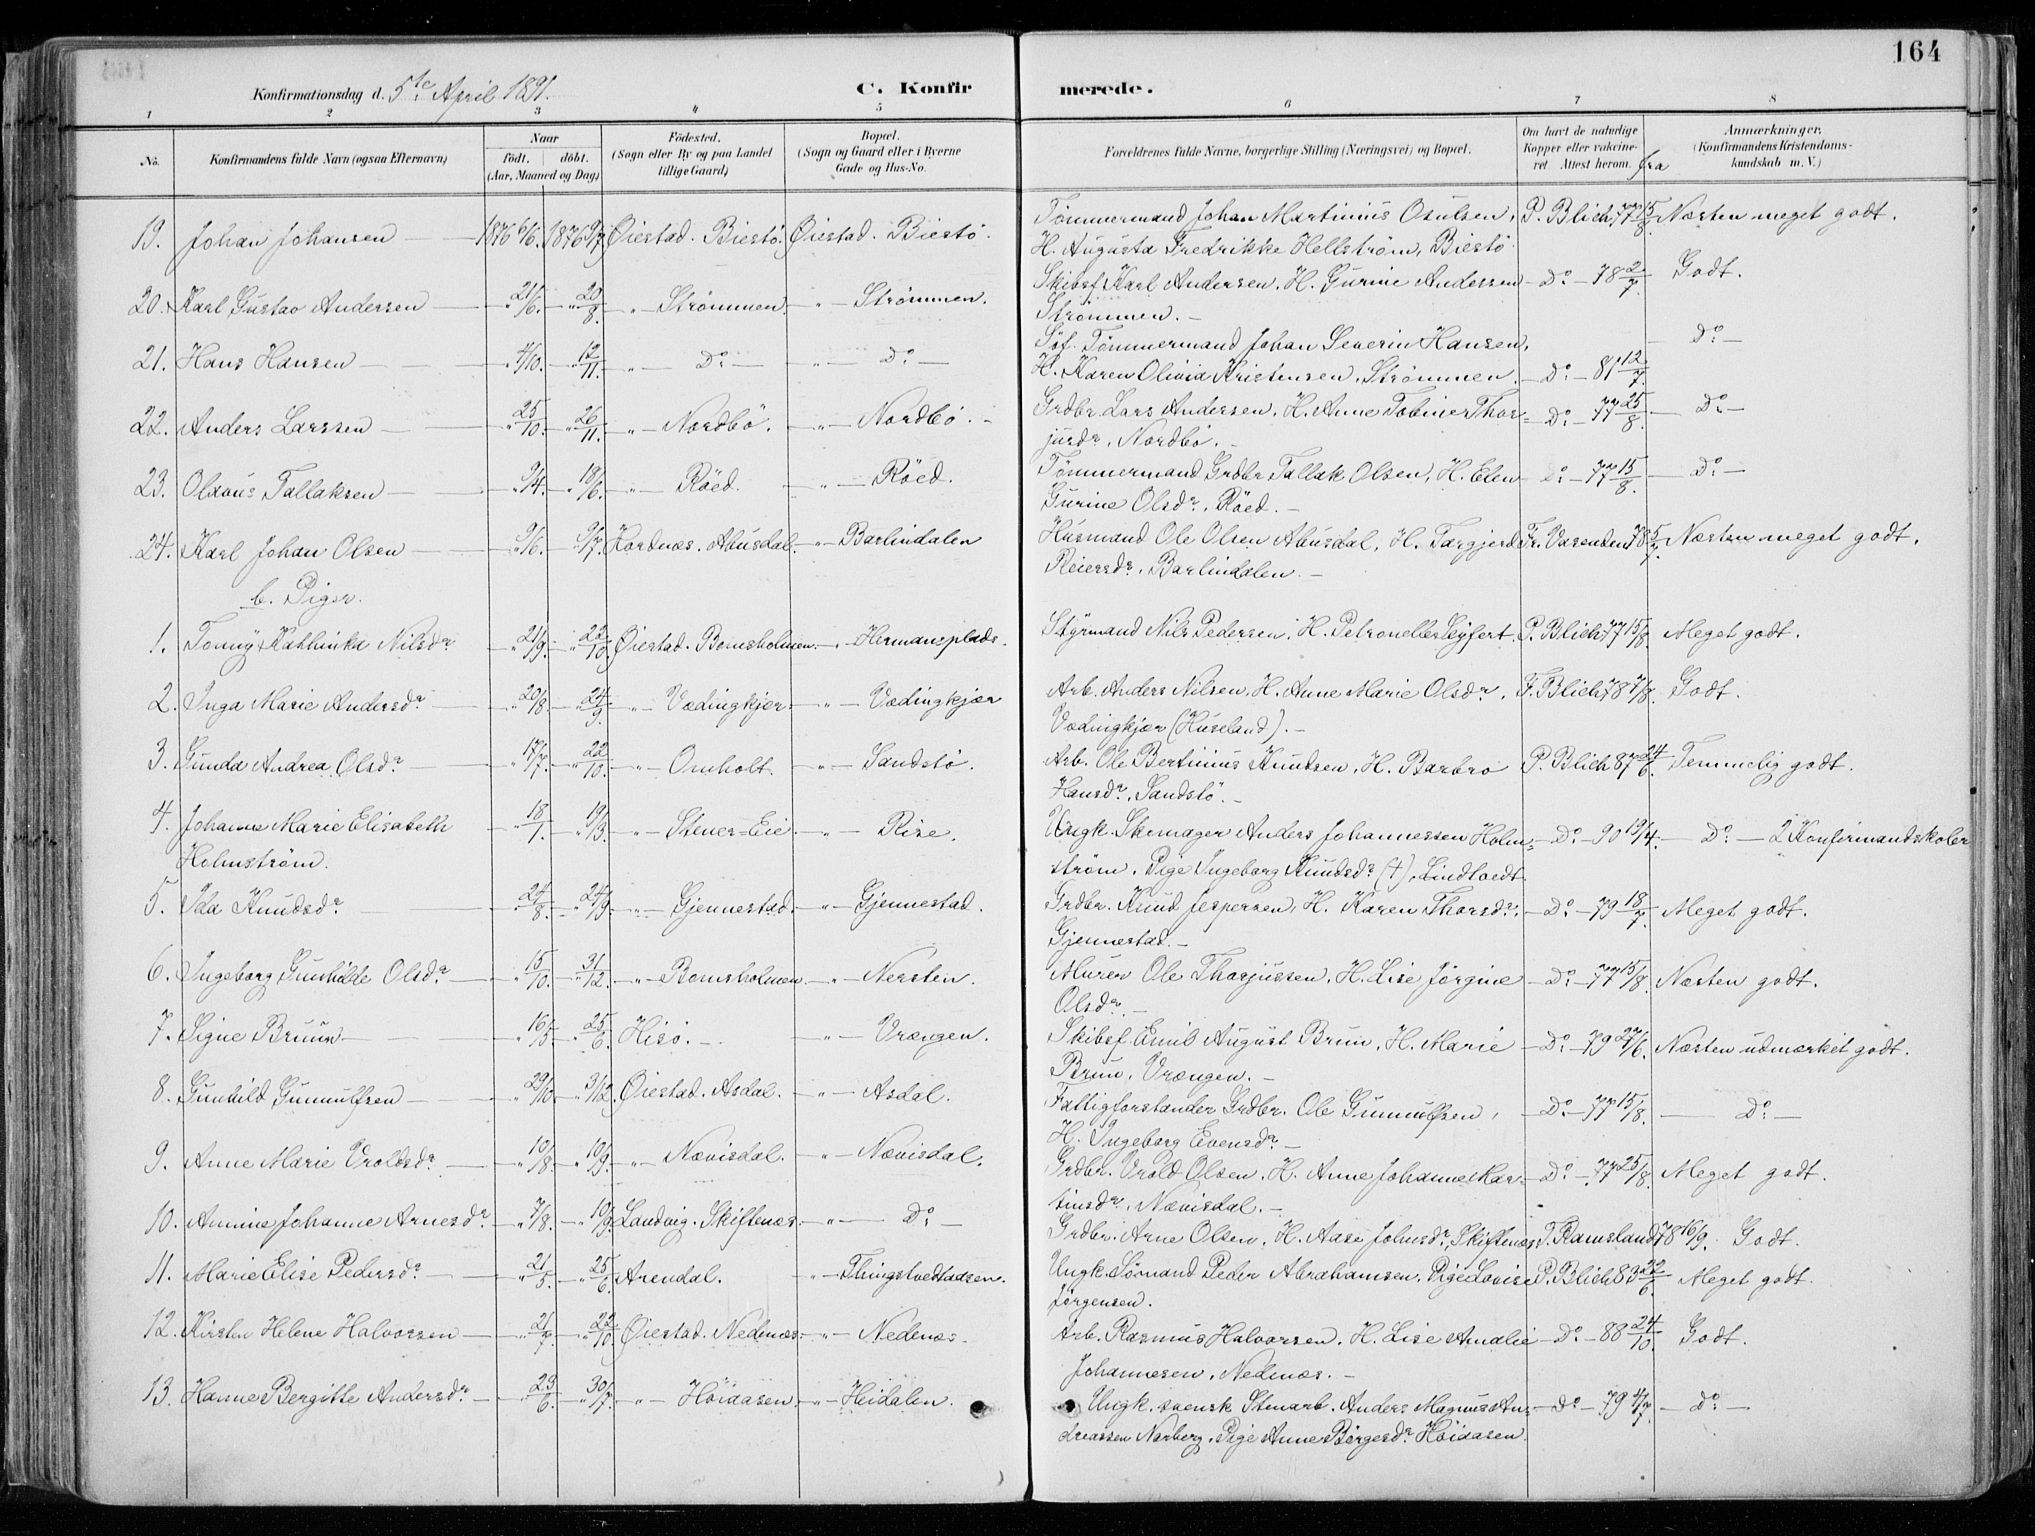 164
Konfirmationsdag d. 5te April 1891.
C. Konfirmerede.
1 2 3 4 5 6 7 8
No.
Konfirmandens fulde Navn (ogsaa Efternavn)
Naar
født. døbt.
(Aar, Maaned og Dag)
Fødested.
(Sogn eller By og paa Landet
tillige Gaard)
Bopæl.
(Sogn og Gaard eller i Byerne
Gade og Hus-No.
Forældrenes fulde Navne, borgerlige Stilling (Næringsvei) og Bopæl.
Om havt de naturlige
Kopper eller vakcine-
ret. Attest herom. fra
Anmærkninger.
(Konfirmandens Kristendoms-
kundskab m. V.)
19. Johan Johansen — 1876 6/6. 1876 9/7 Øiestad. Biestø. Øiestad. Biestø. Tømmermand Johan Martinius Osulsen, P. Blich 77 15/8 Næsten meget godt.
H. Augusta Fredrikke Hellstrøm, Biestø.
20. Karl Gustav Andersen — " 21/6. — " 20/8. — " — Strømmen. — " — Strømmen. Skibsf. Karl Andersen, H. Gurine Andersen — Do — 78 2/7. Godt.
Strømmen. —
21. Hans Hansen — — " 4/10. — " 12/11. — " — Do — — " — Do — Søf. Tømmermand Johan Severin Hansen, — Do —
H. Karen Olivia Kristensen, Strømmen. — Do — 81 12/7.
22. Anders Larssen — " 25/10. — " 26/11. — " — Nordbø. — " — Nordbø. — Grdbr. Lars Andersen, H. Anne Tobine Thor= — Do — 77 25/8. — Do —
jusdr, Nordbø. —
23. Olaus Tallaksen — " 9/4. — " 18/6. — " — Røed. — " — Røed. Tømmermand Grdbr Tallak Olsen, H. Elen — Do — 77 15/8. — Do —
Gurine Olsdr, Røed. —
24. Karl Johan Olsen — " 9/6. — " 9/7. Hordnæs. Abusdal. — " — Barlindalen Husmand Ole Olsen Abusdal, H. Targjerd Fr. Vasenden 78 5/7. Næsten meget godt.
Reiersdr, Barlindalen. —
b. Piger.
1. Tonny Kathinka Nilsdr " 21/9. — " 22/10 Øiestad. Bomsholmen. — " — Hermansplads. Styrmand Nils Pedersen, H. Petronelle Leyfert. P. Blich 77 15/8. Meget godt.
2. Inga Marie Andersdr — " 20/8. — " 24/9. — " — Vædingkjær. — " — Vædingkjær Arb. Anders Nilsen, H. Anne Marie Olsdr, F. Blich 78 7/8. Godt.
Vædingkjær (Huseland). —
3. Gunda Andrea Olsdr — " 17/7. — " 22/10. — " — Omholt. — " — Sandstø. Arb. Ole Bertinius Knudsen, H. Barbro P. Blich 87 24/6. Temmelig godt.
Hansdr, Sandstø. —
4. Johanne Marie Elisabeth — " 18/1. — " 19/3. — " — Stener=Eie. — " — Rise. Ungk. Skomager Anders Johannessen Holm= — Do — 90 19/4. — Do — 2 Konfirmandskoler
Holmstrøm. strøm, Pige Ingeborg Knudsdr (†), Lindtvedt
5. Ida Knudsdr — " 24/8. — " 24/9 — " — Gjennestad. — " — Gjennestad. Grdbr. Knud Jespersen, H. Karen Thorsdr, — Do — 79 18/7. Meget godt.
Gjennestad. —
6. Ingeborg Gunhilde Olsdr — " 15/10. — " 31/12. — " — Bomsholmen — " — Nersten. Murer Ole Thorjussen, H. Lise Jørgine — Do — 77 15/8. Næsten godt.
Olsdr. —
7. Signe Bruun — " 16/5 — " 25/6. Hisø. — — " — Vrængen. Skibsf. Emil August Brun, H. Marie — Do — 79 27/6. Næsten udmærket godt.
Brun, Vrængen. —
8. Gunhild Gunnulfsen — " 29/10. — " 3/12. Øiestad. Asdal. — " — Asdal. Fattigforstander Grdbr. Ole Gunnulfsen, — Do — 77 15/8. — Do —
H. Ingeborg Evensdr —
9. Anne Marie Vroldsdr — " 10/8. — " 10/9. " — Nævisdal. — " — Nævisdal. Grdbr. Vrold Olsen, H. Anne Johanne Mar= — Do — 77 25/8. Meget godt.
tinsdr, Nævisdal. —
10. Annine Johanne Arnesdr — " 7/8. — " 10/9. Landvig. Skiftenæs. — " — Do — Grdbr. Arne Olsen, H. Aase Johnsdr, Skiftenæs T. Ramsland 78 16/9. Godt.
11. Marie Elise Pedersdr — " 21/5. — " 25/6. Arendal. — " — Thingstvedtaasen. Ungk. Sømand Peder Abrahamsen, Pige Lovise P. Blich 83 22/6. Meget godt.
Jørgensen.
12. Kirsten Helene Halvorsen — " 21/7. — " 22/10. Øiestad. Nedenæs. — " — Nedenæs. Arb. Rasmus Halvorsen, H. Lise Amalie — Do — 88 24/10. Godt.
Johannesen, Nedenæs. —
13. Hanne Bergitte Andersdr — " 23/6. — " 30/7. — " — Høidasen. — " — Heidalen. Ungk. svensk Stenarb. Anders Magnus An= — Do — 79 4/7 — Do —
dreassen Norberg, Pige Anne Børgesdr Høidasen.